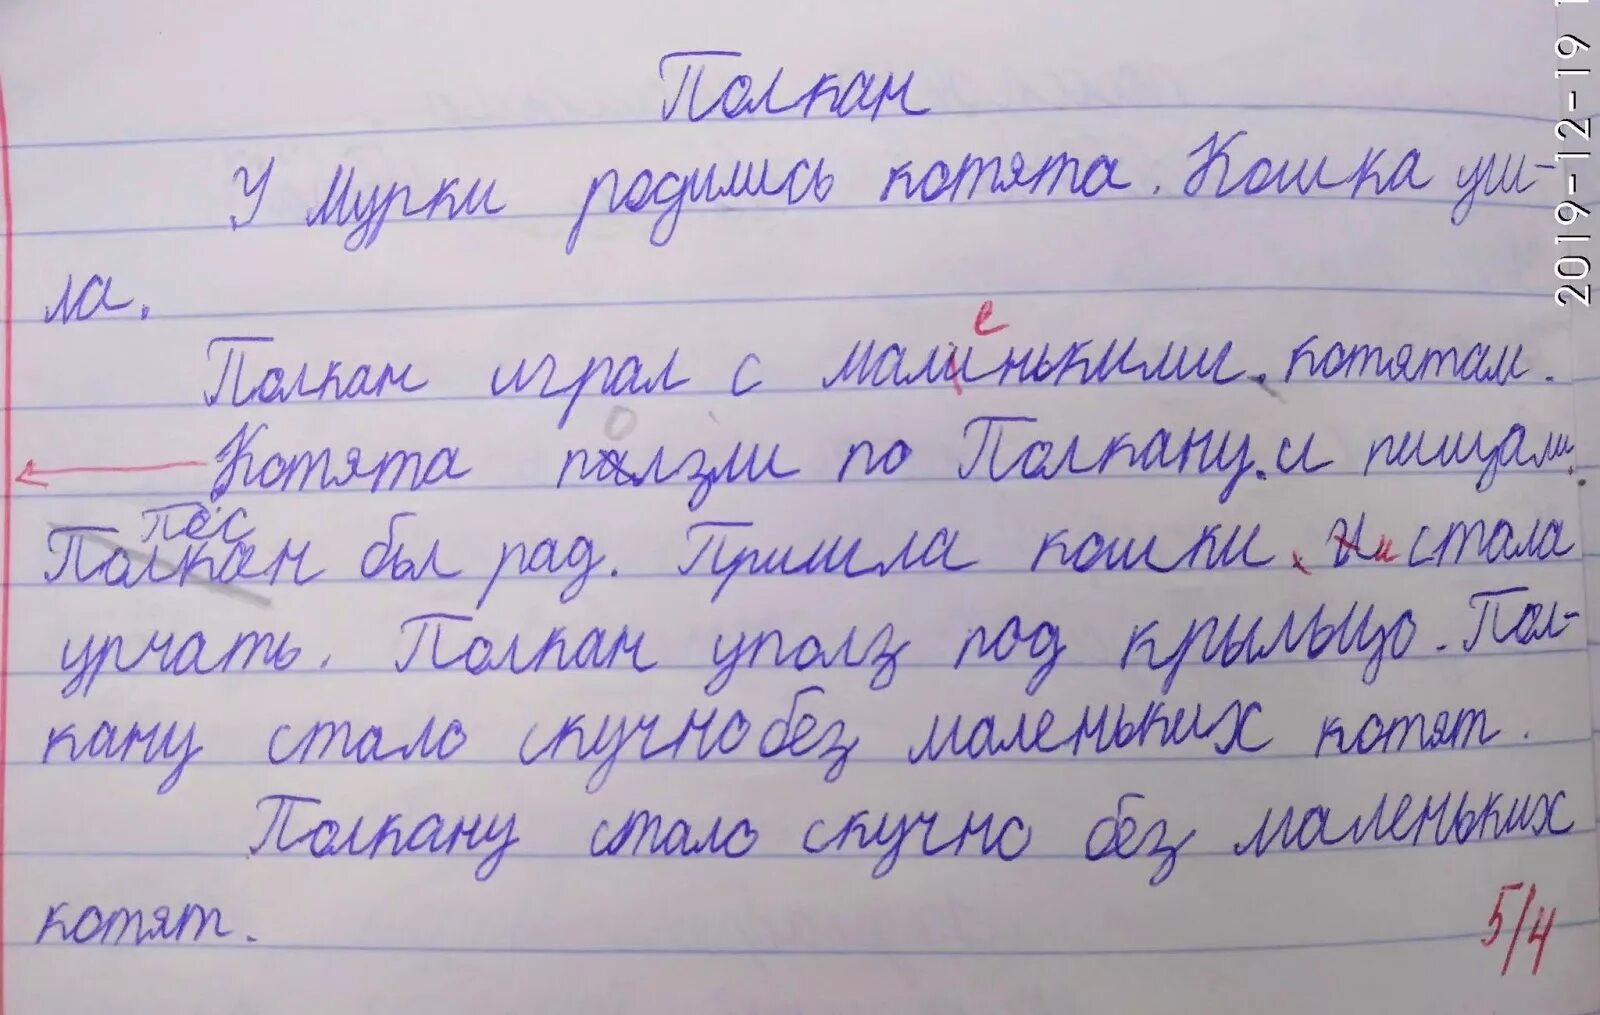 Полкан
У Мурки родились котята. Кошка уш-
ла.
е
Полкан играл с малинькими. котятам.
о
Котята палзли по Полкану. и пищали.
Пёс
Полкан был рад. Пришла кошки. И и стала
урчать. Полкан уполз под крыльцо. Пол-
кану стало скучно без маленьких котят.
Полкану стало скучно без маленьких
котят.
5/4
2019-12-19 1